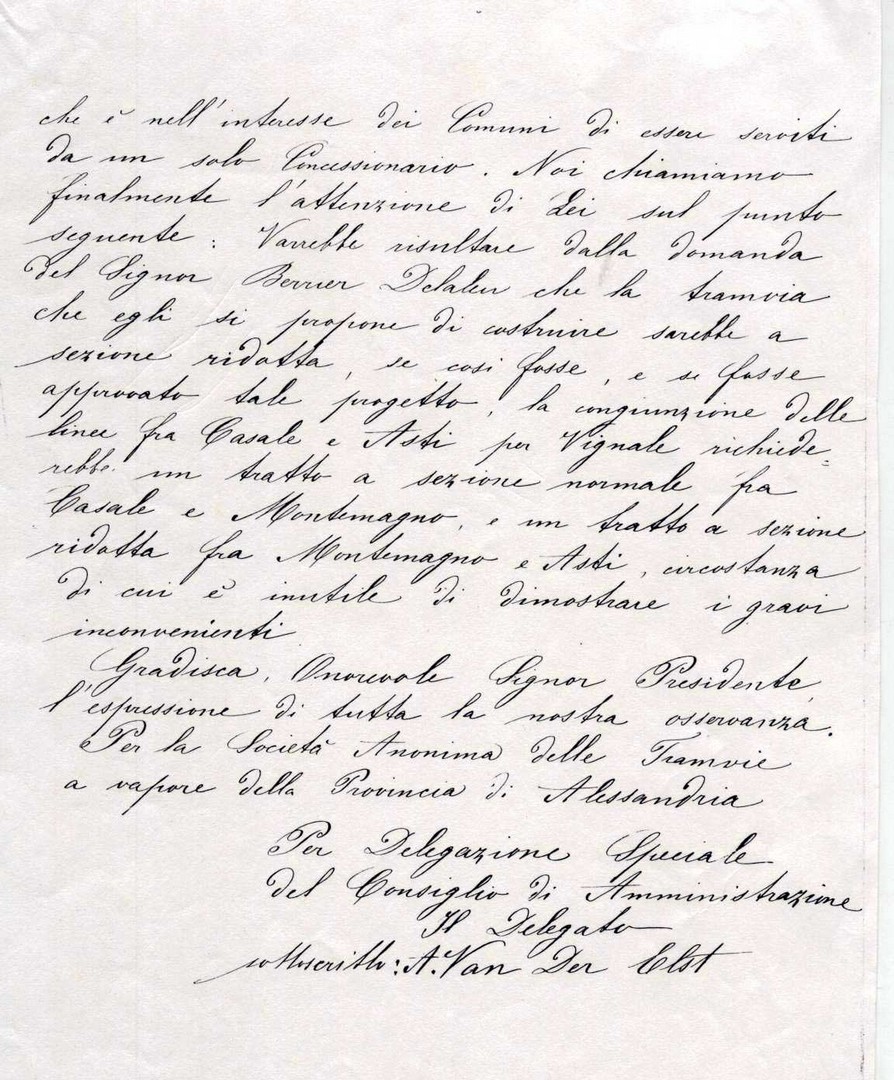 che è nell'interesse dei Comuni di essere serviti
da un solo Concessionario. Noi chiamiamo
finalmente l'attenzione di Lei sul punto
seguente: Varrebbe risultare dalla domanda
del Signor Berrier Delaleu che la tramvia
che egli si propone di costruire sarebbe a
sezione ridotta, se così fosse, e se fosse
approvato tale progetto, la congiunzione delle
linee fra Casale e Asti per Vignale richiede=
rebbe un tratto a sezione normale fra
Casale e Montemagno, e un tratto a sezione
ridotta fra Montemagno e Asti, circostanza
di cui è inutile di dimostrare i gravi
inconvenienti
Gradisca, Onorevole Signor Presidente,
l'espressione di tutta la nostra osservanza.
Per la Società Anonima delle Tramvie
a vapore della Provincia di Alessandria
Per Delegazione Speciale
del Consiglio di Amministrazione
Il Delegato
sottoscritto: A. Van Der Elst